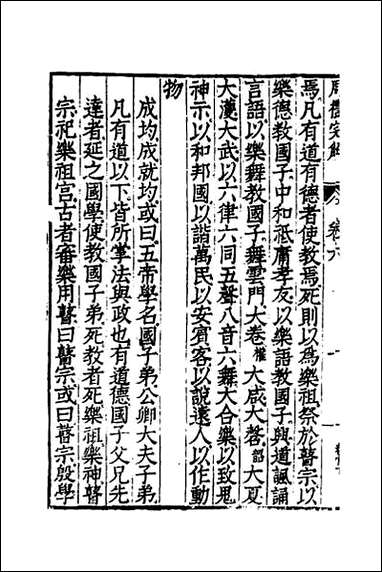 周禮完解 卷六
焉凡有道有德者使教焉死則以為樂祖祭於瞽宗以
樂德教國子中和祗庸孝友以樂語教國子興道諷誦
言語以樂舞教國子舞雲門大卷權大咸大㲈韶大夏
大濩大武以六律六同五聲八音六舞大合樂以致鬼
神示以和邦國以諧萬民以安賓客以說遠人以作動
物
成均成就均或曰五帝學名國子弟公卿大夫子弟
凡有道以下皆所掌法與政也有道德國子父兄先
達者延之國學使教國子弟死教者死樂祖樂神瞽
宗祀樂祖宮古者審樂用瞽曰瞽宗或曰瞽宗殷學